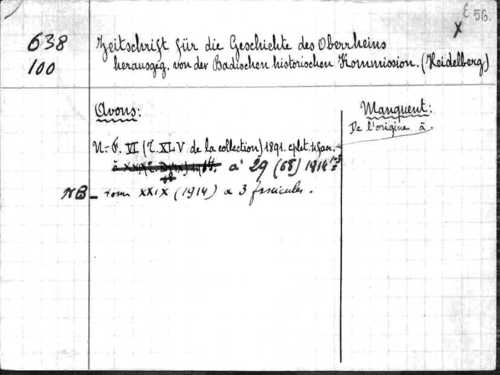 E 56.
X
638
100
Zeitschrift für die Geschichte des Oberrheins
herausgeg. von der Badischen historischen Kommission. (Heidelberg)
Avons:
Manquent:
De l'origine à
N-F. VI (T. XLV de la collection) 1891. cplt.
à 29 (68) 1914
NB - tom XXIX (1914) a 3 fascicules.